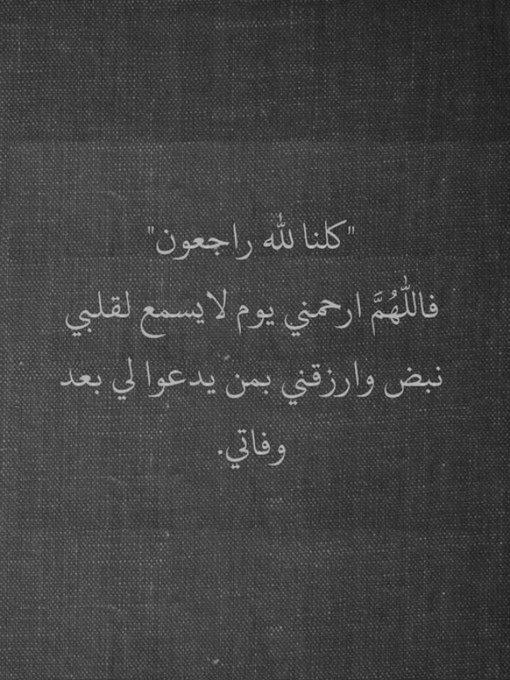 "كلنا لله راجعون"
فاللّٰهُمَّ ارحمني يوم لايسمع لقلبي
نبض وارزقني بمن يدعوا لي بعد
وفاتي.